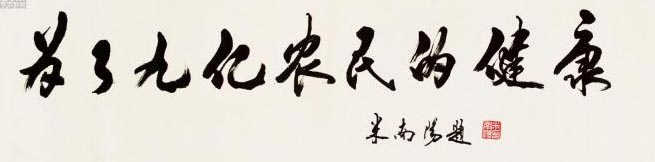 为了九亿农民的健康
米南阳题